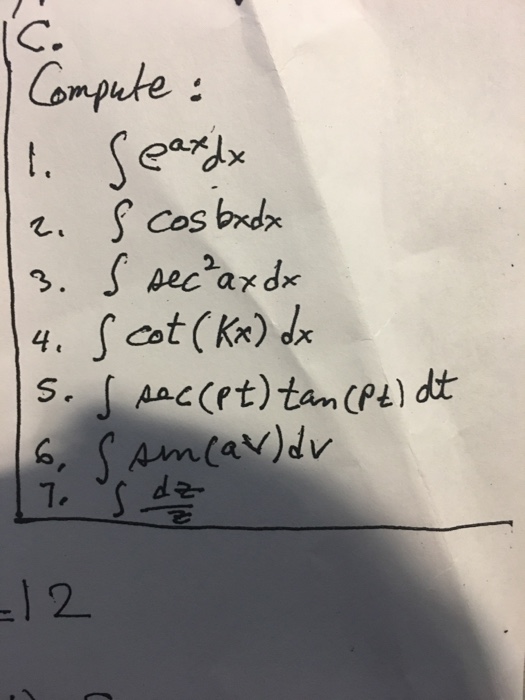 C.
Compute :
1. ∫ e^ax dx
2. ∫ cos bxdx
3. ∫ sec²ax dx
4. ∫ cot (Kx) dx
5. ∫ sec(pt) tan(pt) dt
6. ∫ sin(av)dv
7. ∫ dz/z
=12